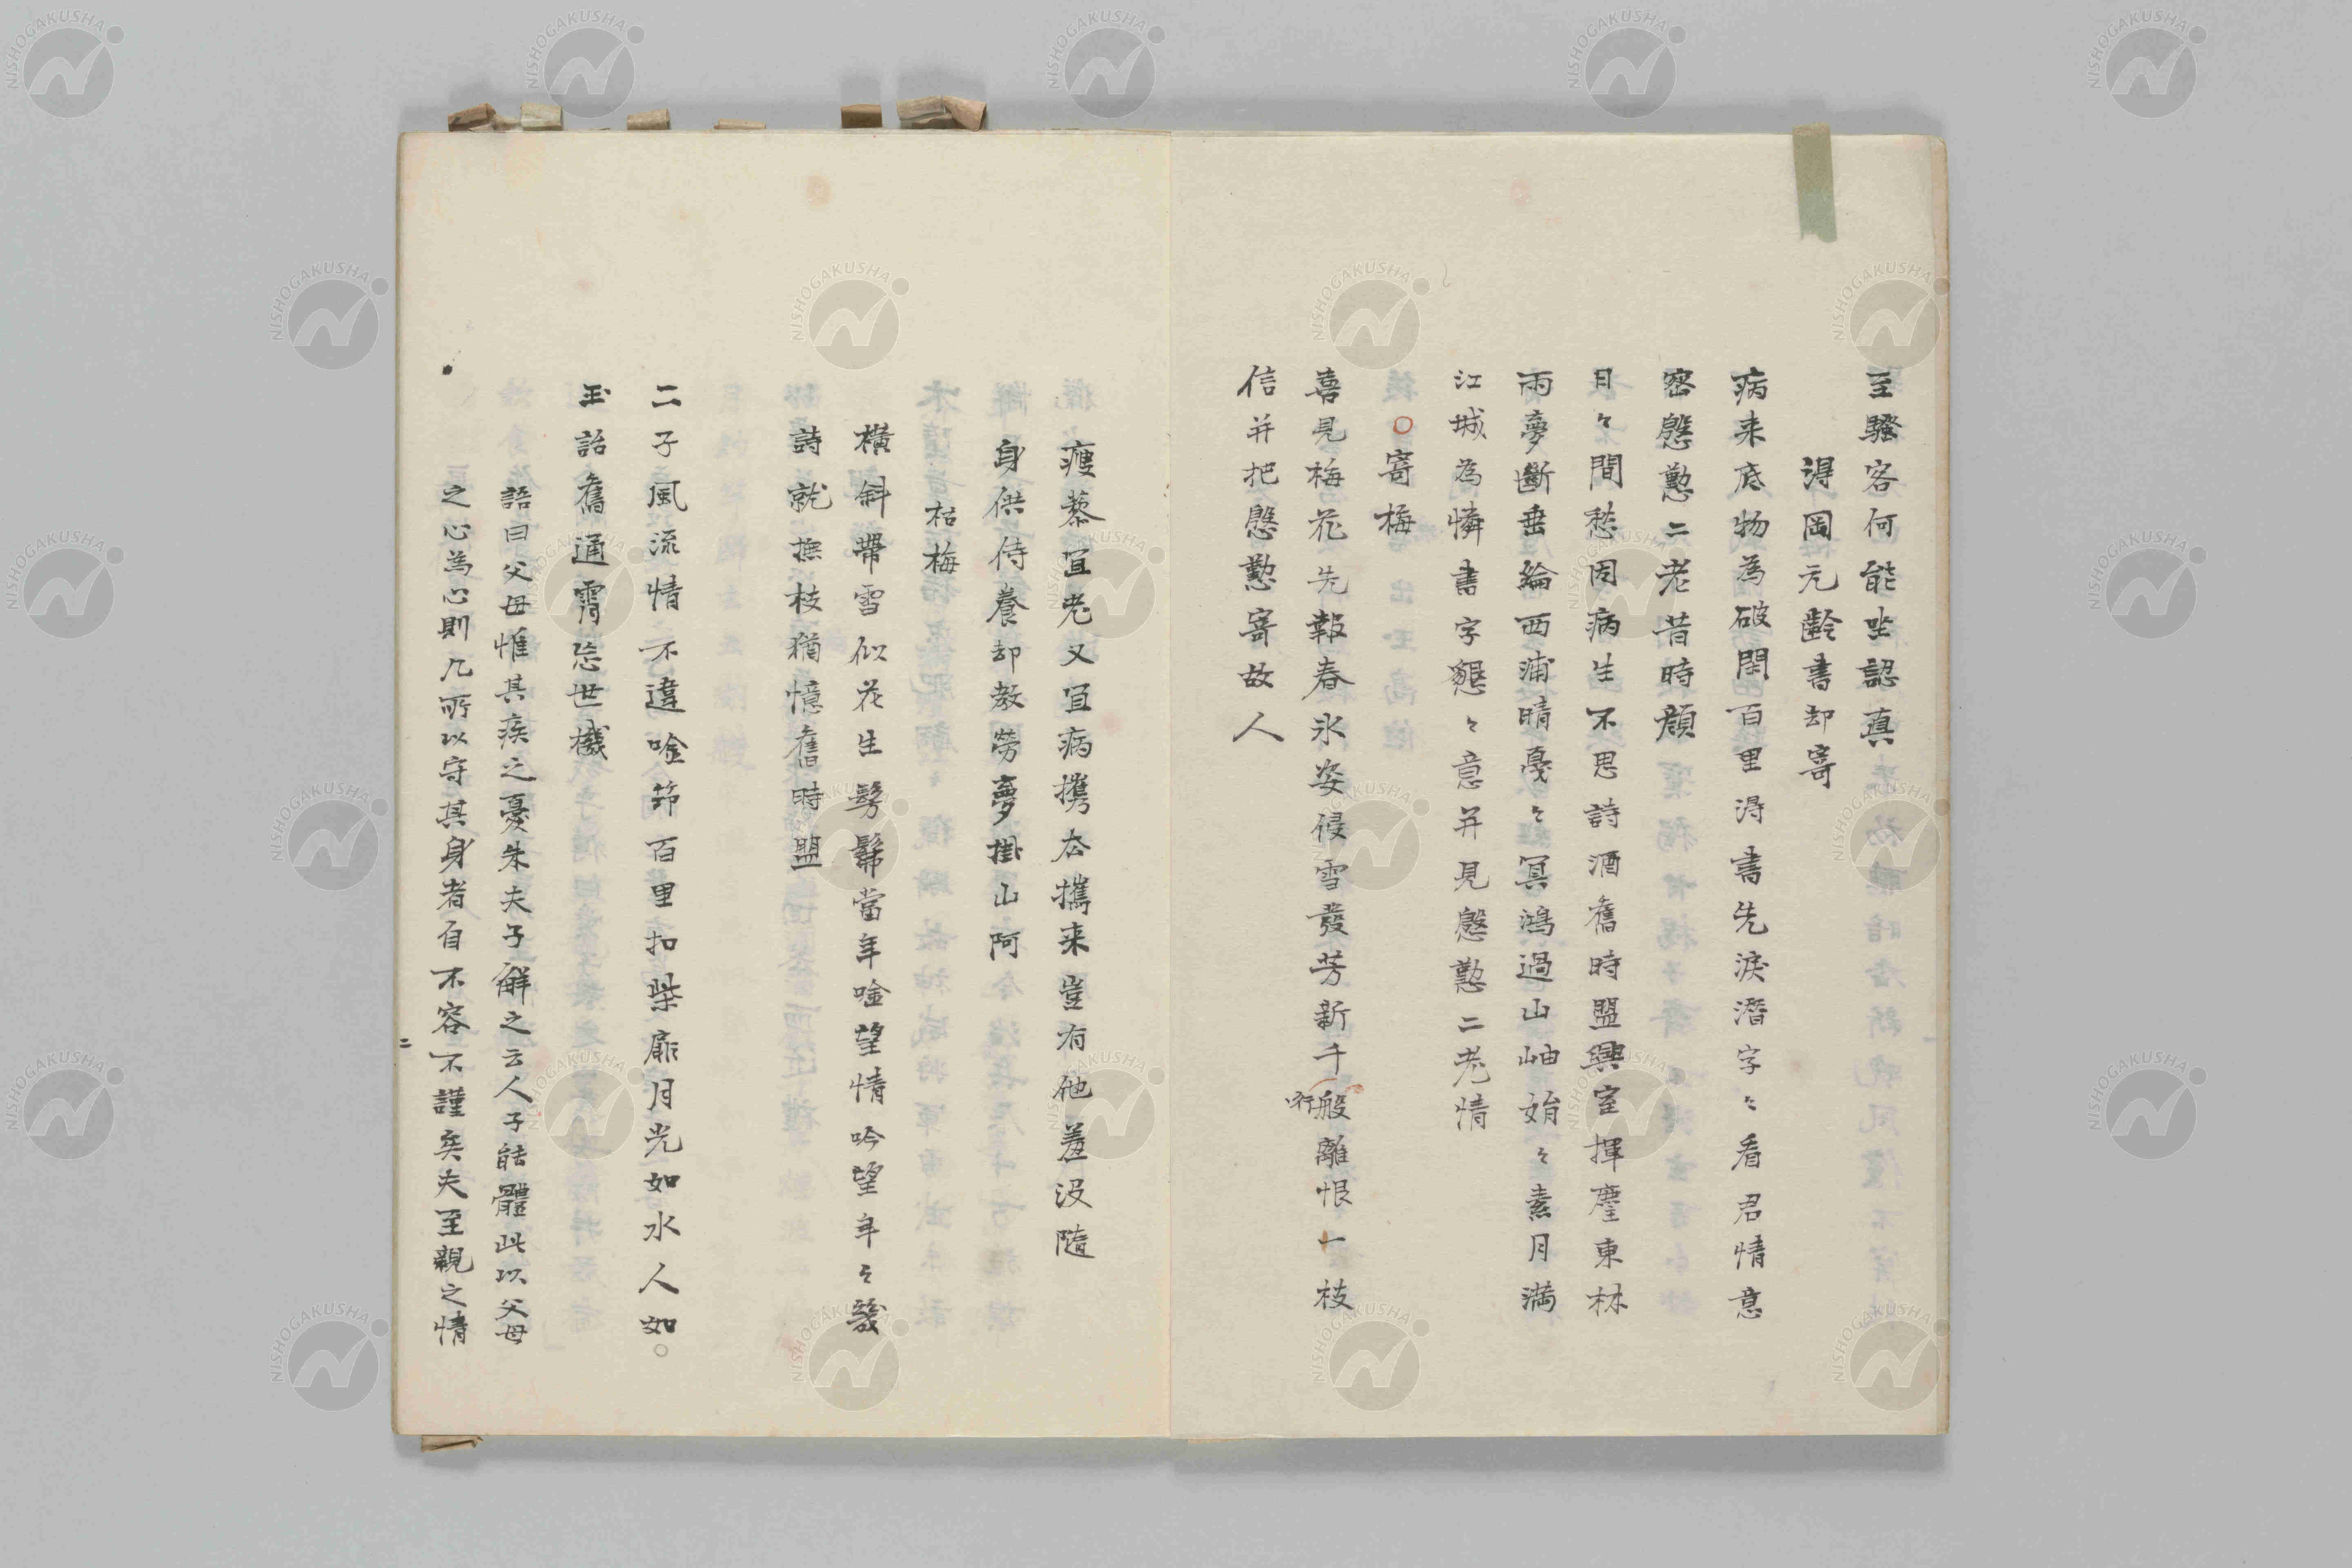 至騷客何能坐認真
得岡元齡書却寄
病来底物為破閑百里得書先淚潛字〻看君情意
密慇懃二老昔時顔
日〻間愁因病生不思詩酒舊時盟興室揮麈東林
雨夢斷垂綸西浦晴戞〻冥鴻過山岫娟〻素月満
江城為憐書字懇〻意并見慇懃二老情
寄梅
喜見梅花先報春氷姿侵雪發芳新千般離恨一枝
信并把慇懃寄故人
瘦藜宜老又宜病携去攜来豈有他羞汲隨
身供侍養却教勞夢掛山阿
枯梅
横斜帶雪似花生髣髴當年唫望情吟望年〻幾
詩就撫枝猶憶舊時盟
二子風流情不違唫笻百里扣柴扉月光如水人如
玉話舊通霄忘世機
語曰父母惟其疾之憂朱夫子解之云人子能體此以父母
之心為心則凡所以守其身者自不容不謹矣夫至親之情
二
NISHOGAKUSHA